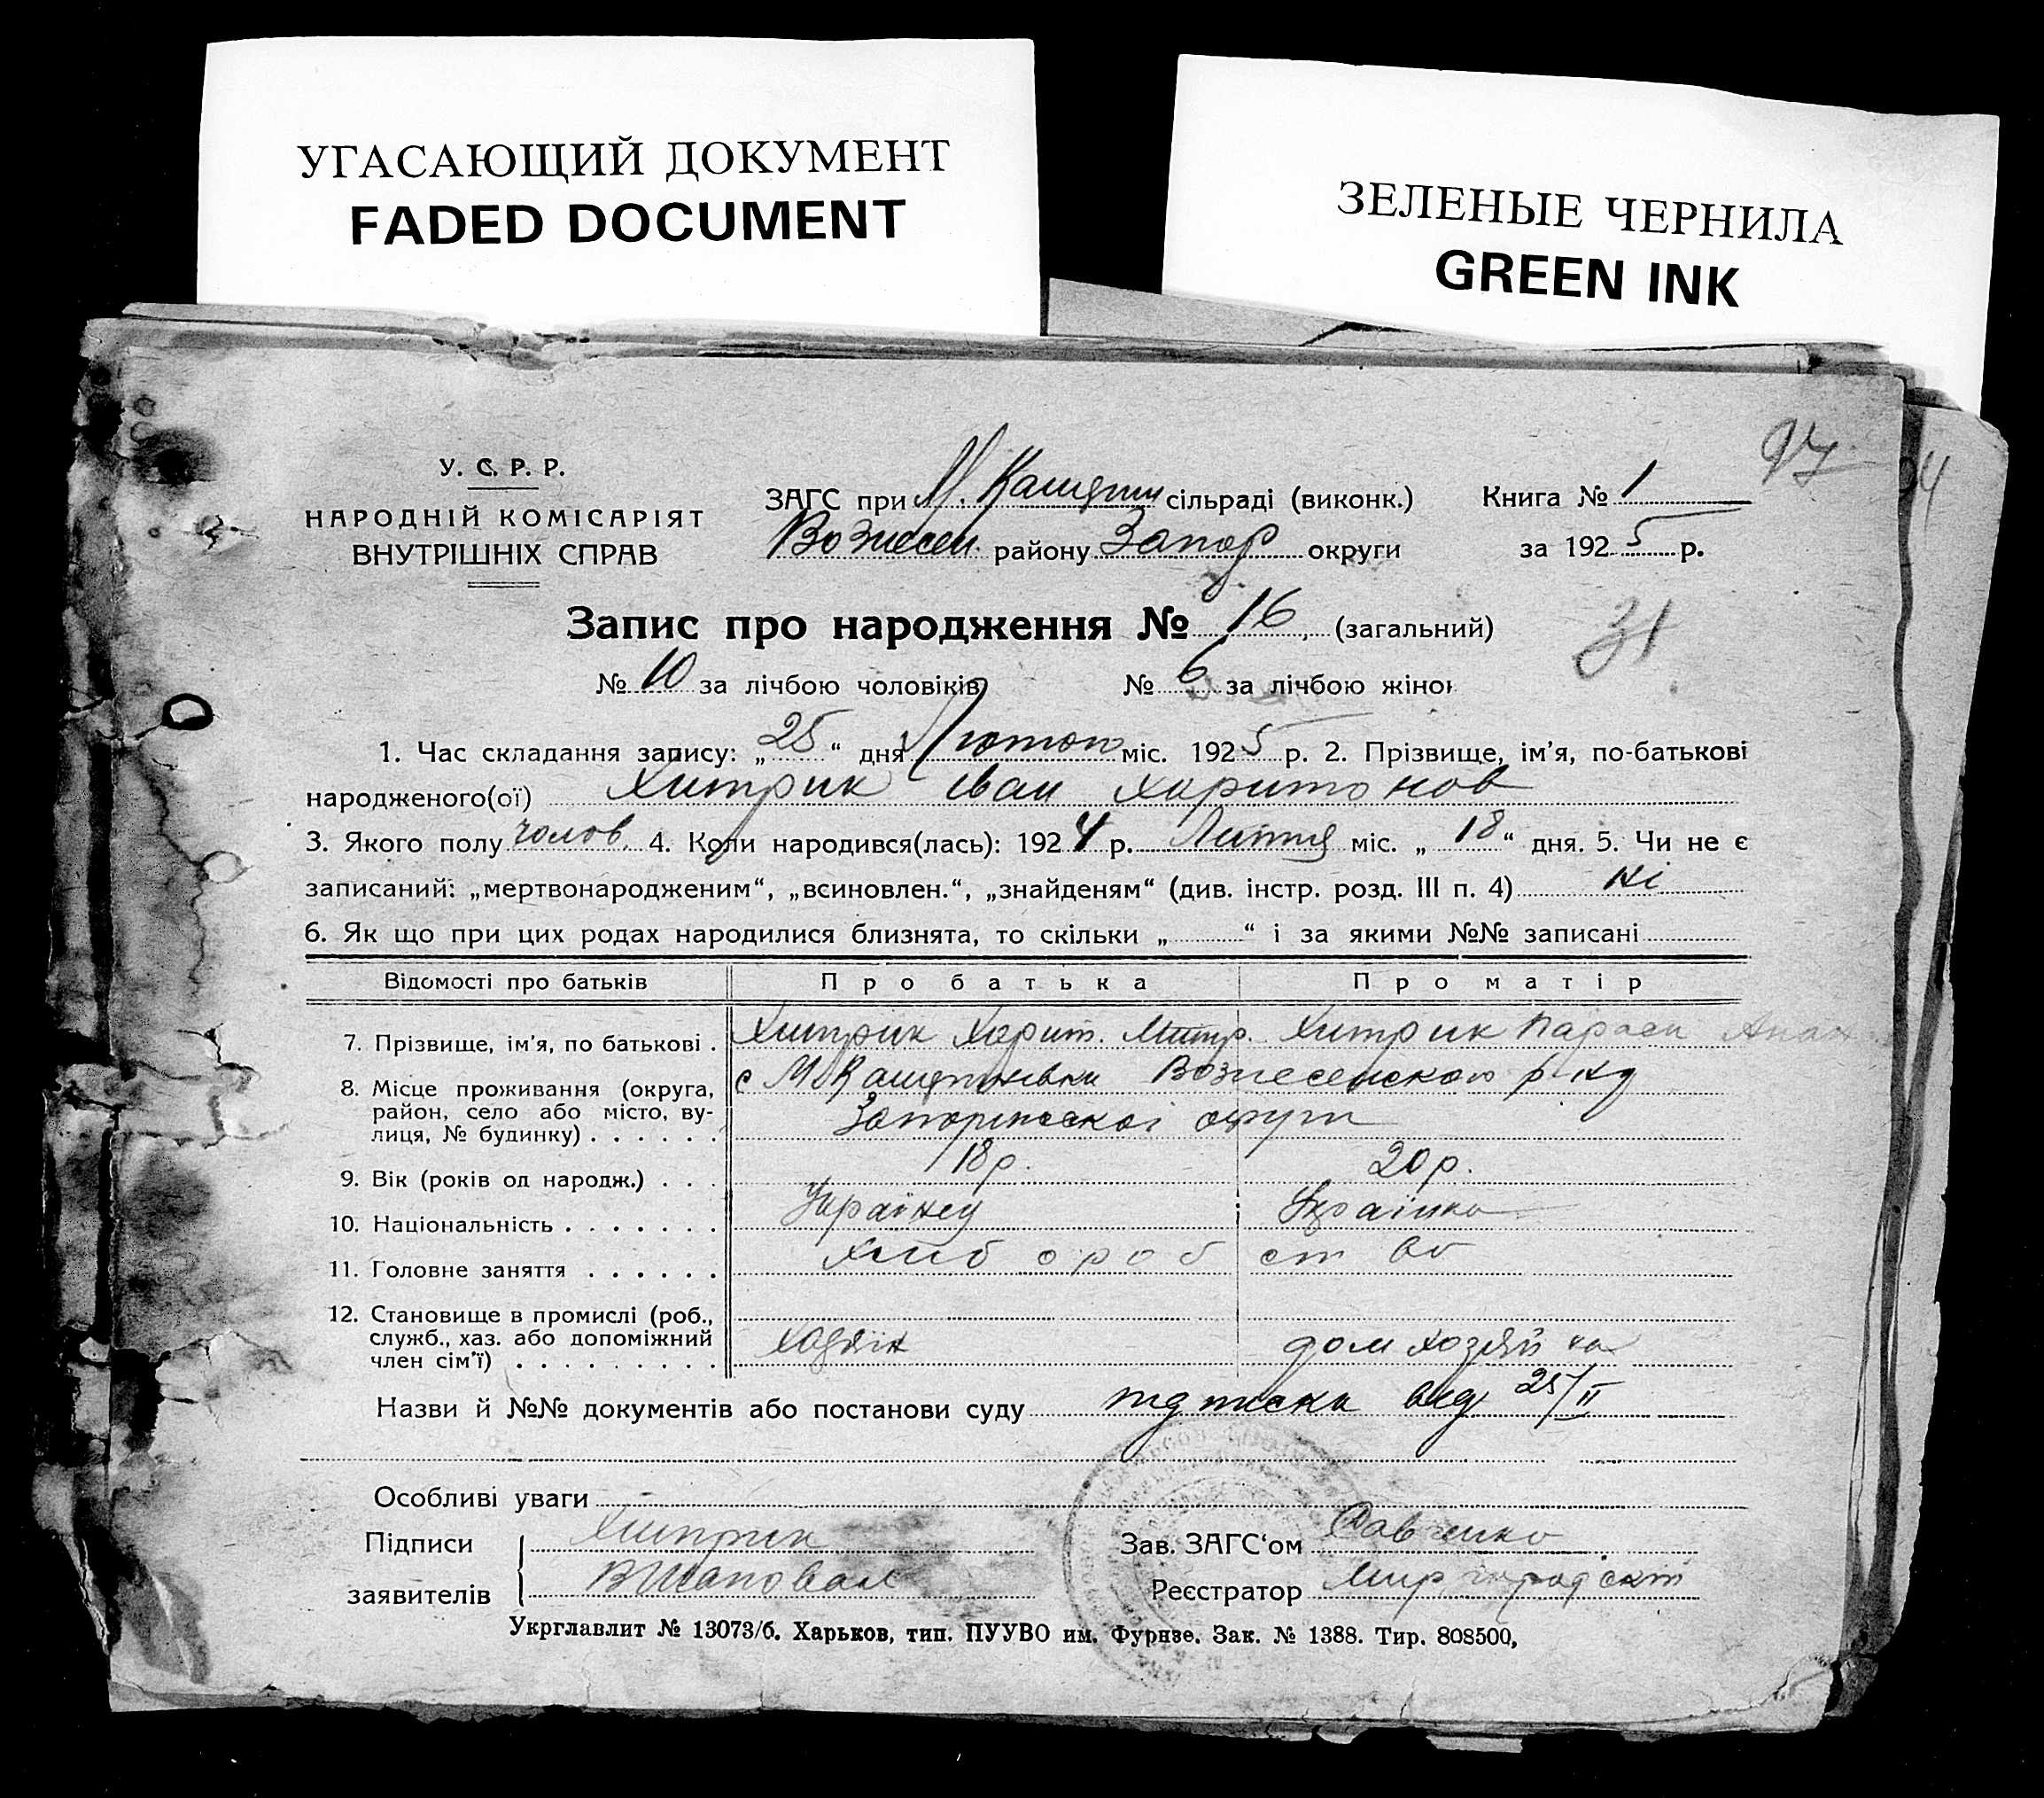 УГАСАЮЩИЙ ДОКУМЕНТ
FADED DOCUMENT
ЗЕЛЕНЫЕ ЧЕРНИЛА
GREEN INK
97
94
У. С. Р. Р.
НАРОДНІЙ КОМІСАРІЯТ
ВНУТРІШНІХ СПРАВ
ЗАГС при М. сільраді (виконк.) Книга № 1
Вознесен. району Запор округи за 1925 р.
Запис про народження № 16 (загальний)
31
№ 10 за лічбою чоловіків № 6 за лічбою жінок
1. Час складання запису: „25“ дня Лютого міс. 1925 р. 2. Прізвище, ім'я, по-батькові
народженого(ої) Хитрик Іван Харитонов
3. Якого полу чолов. 4. Коли народився(лась): 1924 р. Липня міс. „18“ дня. 5. Чи не є
записаний: „мертвонародженим“, „всиновлен.“, „знайденям“ (див. інстр. розд. III п. 4) Ні
6. Як що при цих родах народилися близнята, то скільки „ “ і за якими №№ записані
Відомості про батьків Про батька Про матір
7. Прізвище, ім'я, по батькові . Хитрик Харит. Митр. Хитрик Параси
8. Місце проживання (округа, с М Вознесенского р-ну
район, село або місто, ву-
лиця, № будинку) . . . . . . Запоріжської округи
9. Вік (років од народж.) . . . 18 р. 20 р.
10. Національність . . . . . . . Українец Українка
11. Головне заняття . . . . . . хліборобство
12. Становище в промислі (роб.,
служб., хаз. або допоміжний
член сім'ї) . . . . . . . . . хазяїн дом хозяйка
Назви й №№ документів або постанови суду підписка від 25/II
Особливі уваги
Підписи Хитрик Зав. ЗАГС'ом Савченко
заявителів В Шаповал Реєстратор Миргородский
Укрглавлит № 13073/б. Харьков, тип. ПУУВО им. Фурнзе. Зак. № 1388. Тир. 808500,